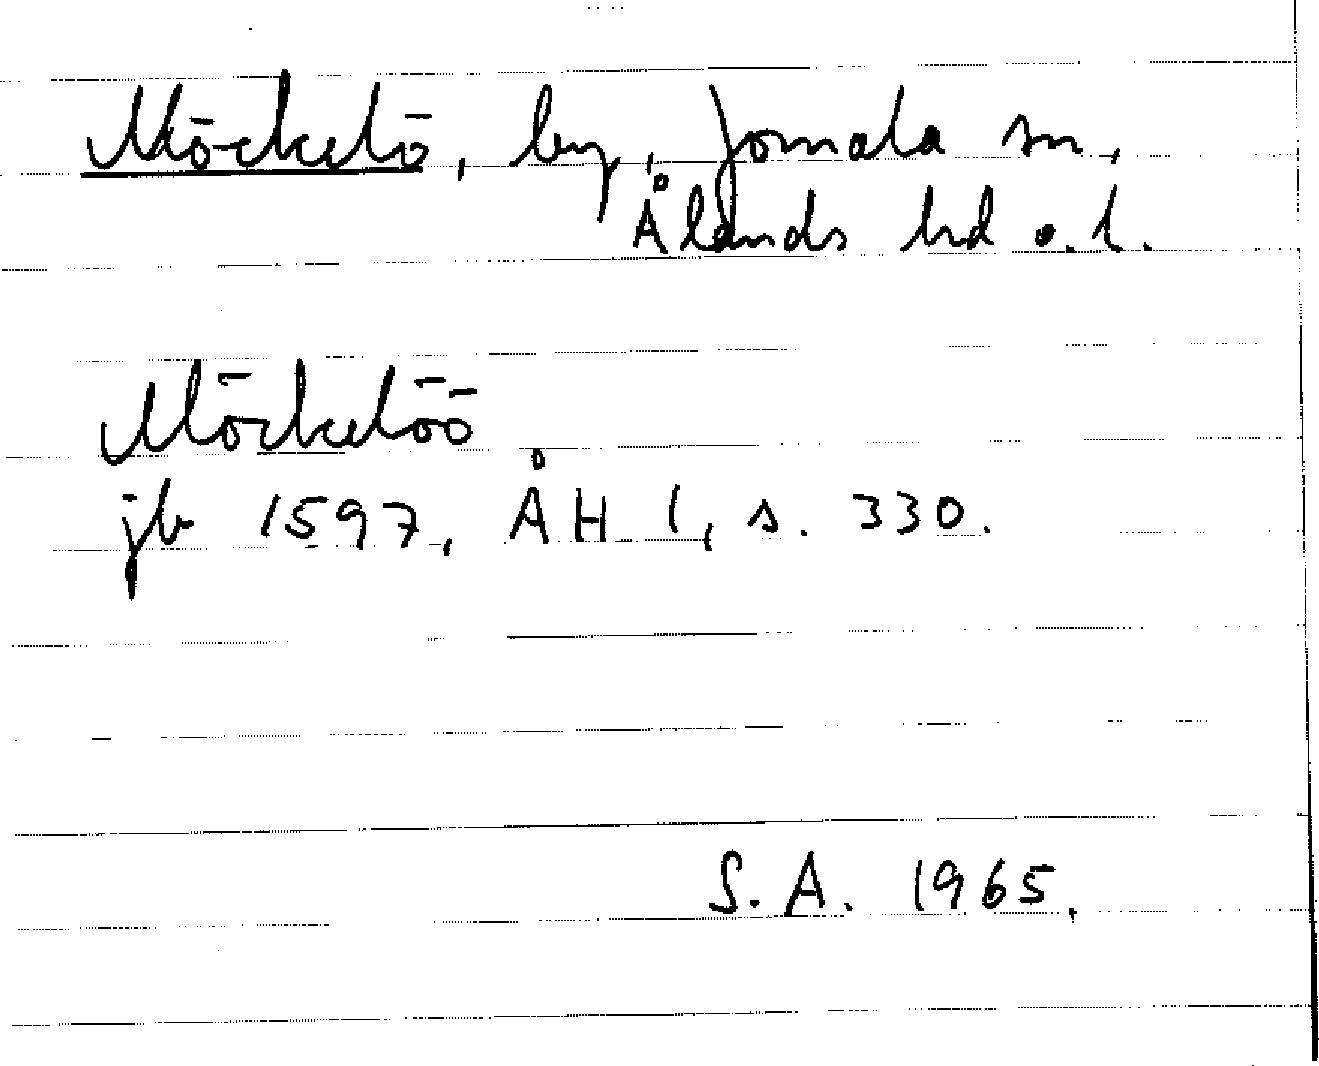 Möckelö, by, Jomala sn,
Ålands hd o. l.
Möckelöö
jb 1597, ÅH I, s. 330.
S.A. 1965.